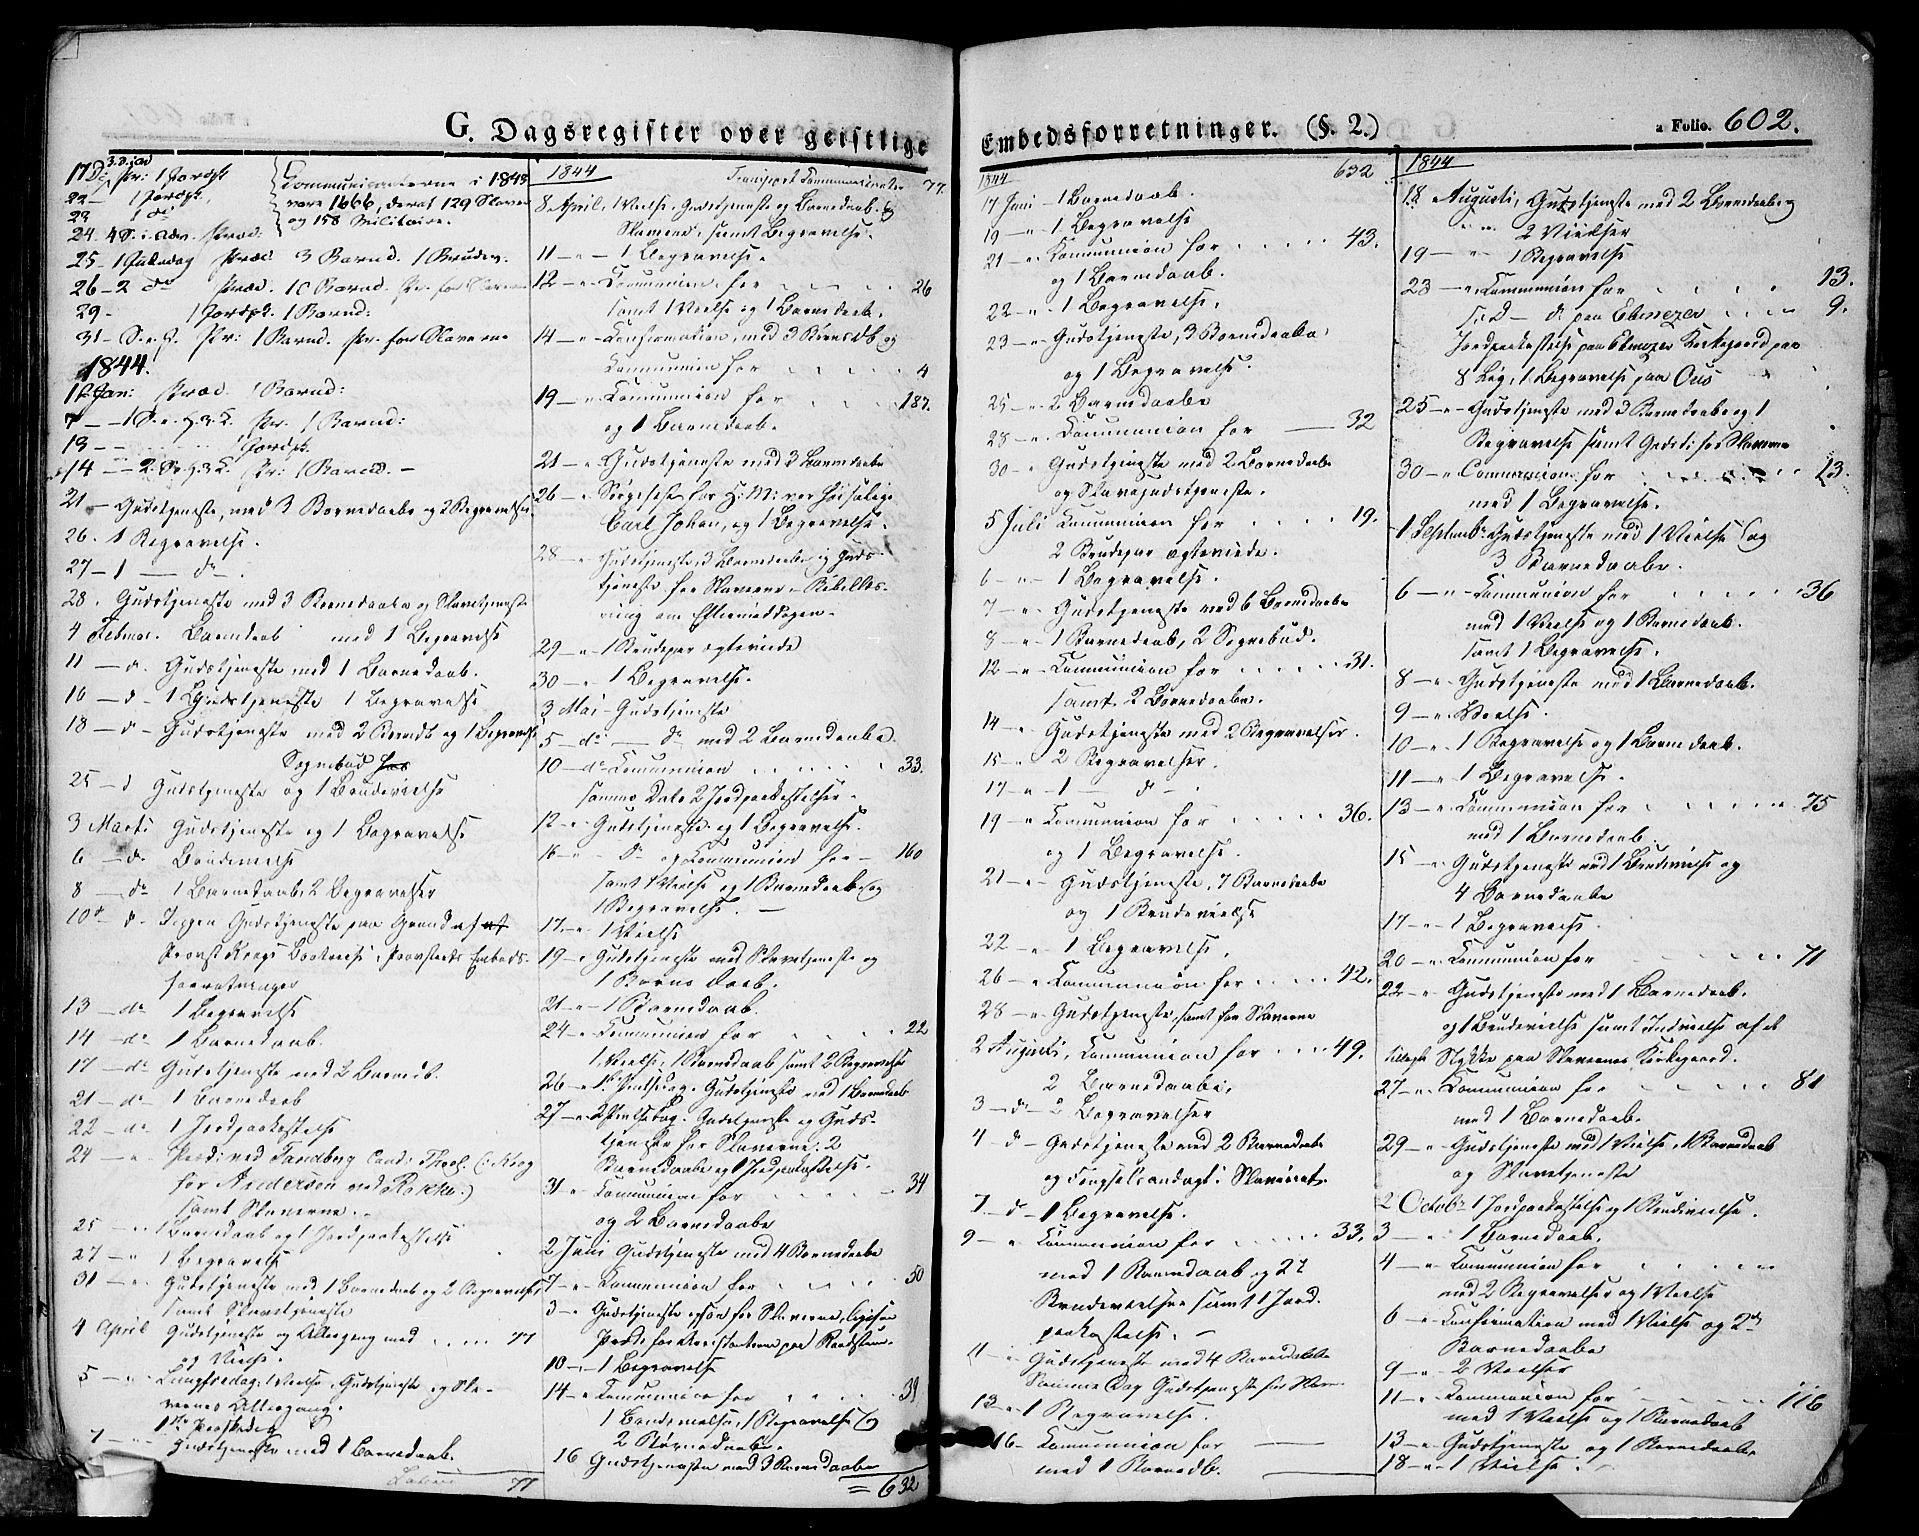 G. Dagsregister over geistlige
Embedsforretninger. (§. 2.)
a Folio. 602.
17 De 3. S. i Ad. Pr: 1 Jordpk
22 — 1 Jordpk.
23 1 do
24. 4 S. i Adv. Præd.
Communicanterne i 1843
vare 1666, deraf 129 Slaver
og 158 Militaire.
25 - 1 Juledag Præd. 3 Barnd. 1 Brudev.
26 - 2 do Præd. 10 Barnd. Pr. for Slaverne
29 - 1 Jordpk. 1 Barnd:
31 - S. e. J. Pr: 1 Barnd. Pr. for Slaverne
1844.
1 Jan: Præd. 1 Barnd:
7 — 1 S. e. H. 3 K. Pr. 1 Barnd:
13 — 1 Jordpk.
14 — 2 S. e. H. 3 K. Pr: 1 Barnd. —
21 — Gudstjeneste, med 3 Barnedaabe og 2 Begravelser
26. 1 Begravelse.
27 — 1 — do
28. Gudstjeneste med 3 Barnedaabe og Slavetjeneste
4 Februar. Barnedaab med 1 Begravelse
11 — d. Gudstjeneste med 1 Barnedaab.
16 — d — 1 Gudstjeneste 1 Begravelse
18 — d — Gudstjeneste med 2 Barndb og 1 Begravelse
Sognebud
25 — d Gudstjeneste og 1 Brudevielse
3 Marts Gudstjeneste og 1 Begravelse
6 — do Brudevielse
8 — do 1 Barnedaab, 2 Begravelser
10 — d — Ingen Gudstjeneste paa Grund af
Provst Krogs Bortreise i Provstiets Embeds-
forretninger
13 — do 1 Begravelse
14 — do 1 Barnedaab.
17 — do Gudstjeneste med 2 Barnedb.
21 — do — 1 Barnedaab
22 — do 1 Jordpaakastelse
24 — " Præd: ved Tandberg Cand: Theol. (: Krog
for Andersen ved Rakke.)
samt Slaverne. —
25 — " 1 Barnedaab og 1 Jordpaakastelse
27 — " 1 Begravelse
31 — " Gudstjeneste med 1 Barnedaab og 2 Begravelser,
samt Slavetjeneste
4 April Gudstjeneste og Altergang med . . . . 77
og Vielse.
5 — " Langfredag, 1 Vielse, Gudstjeneste og Sla-
vernes Altergang.
1ste Paaskedag
7 — " Gudstjeneste med 1 Barnedaab.
Lateris 77
1844 Transport Communicanter 77.
8 April, 1 Vielse, Gudstjeneste og Barnedaab. Og
Slaverne, samt Begravelse.
11 — " — 1 Begravelse.
12 — " Communion for . . . . 26
samt 1 Vielse og 1 Barnedaab.
14 — " Confirmation, med 3 Børnedb og
Communion for . . . . 4
19 — " Communion for . . . 187.
og 1 Barnedaab.
21 — " Gudstjeneste med 3 Barnedaabe
26 — " Sørgefest for H. M: vor høisalige
Carl Johan, og 1 Begravelse.
28 — " Gudstjeneste, 3 Barnedaabe og Guds-
tjeneste for Slaverne - Bibellæs-
ning om Eftermiddagen —
29 — " — 1 Brudepar ægteviede
30 — " — 1 Begravelse.
3 Mai - Gudstjeneste
5 — do — do med 2 Barnedaabe.
10 — do Communion . . . . 33.
samme Dato 2 Jordpaakastelser.
12 — " Gudstjeneste og 1 Begravelse.
16 — " — do og Communion for — 160
samt 1 Vielse og 1 Barnedaabe og
1 Begravelse. —
17. — " 1 Vielse
19 — " Gudstjeneste med Slavetjeneste og
1 Barnedaab.
21 — " — 1 Barnedaab.
24 — " Communion for . . . 22
1 Vielse, 1 Barnedaab samt 2 Begravelse
26 — " 1ste Pintsedag. Gudstjeneste med 1 Barnedaab
27 — " 2 Pintsedag. Gudstjeneste og Guds-
tjeneste for Slaverne. 2
Barnedaabe og 1 Jordpaakastelse.
31 — " Communion for . . . . 34
og 2 Barnedaabe
2 Juni Gudstjeneste med 4 Barnedaabe
7 — " Communion for . . . . 50
3 — " Gudstjeneste ogsaa for Slaverne,
Præd: for Arrestanterne paa Raadstuen.
10 — " — 1 Begravelse
14 — " Communion for . . . . 39
1 Brudevielse, 1 Begravelse Og
2 Børnedaabe.
16 Gudstjeneste med 3 Barnedaabe
= 632
1844 632
17 Juni — 1 Barnedaab.
19 — " — 1 Begravelse
21 — " Communion for . . . . 43.
og 1 Barnedaab.
22 — " — 1 Begravelse.
23 — " Gudstjeneste, 3 Barnedaabe
og 1 Begravelse.
25 — " — 2 Barnedaabe
28 — " Communion for — 32
30 — " Gudstjeneste med 2 Barnedaabe
og Slavegudstjeneste.
5 Juli Communion for . . . . 19.
2 Brudepar ægteviede.
6 — " — 1 Begravelse.
7 — " Gudstjeneste med 6 Barnedaabe
8 — " — 1 Barnedaab, 2 Sognebud.
12 — " Communion for . . . . 31.
samt 2 Barnedaabe.
14 — " Gudstjeneste med 2 Begravelser.
15 — " 2 Begravelser.
17 — " — 1 — do — .
19 — " Communion for . . . . 36.
og 1 Begravelse.
21 — " Gudstjeneste, 7 Barnedaabe
og 1 Brudevielse
22 — " — 1 Begravelse.
26 — " Communion for . . . . 42.
28 — " Gudstjeneste, samt for Slaverne
2 Augusti, Communion for . . . 49.
2 Barnedaabe.
3 — do — 2 Begravelser
4 — d — Gudstjeneste med 2 Barnedaabe
og Fængselsandagt i Slaveriet.
7 — d — 1 Begravelse.
9 — " Communion for . . . . 33.
med 1 Barnedaab og 2
Brudevielser samt 1 Jord.
paakastelse. —
11 — " Gudstjeneste med 4 Barnedaabe
Samme Dag Gudstjeneste for Slav
13 — " — 1 Begravelse.
16 — Communion for —
med 1 Barnedb.
1844
18 Augusti, Gudstjeneste med 2 Barnedaabe og
" " 2 Vielser
19 — " 1 Begravelse
23 — " Communion for . . . . 13.
— d. paa Ebenezer . . . . 9.
Jordpaakastelse paa Ebenezer Kirkegaard paa
8 Lig, 1 Begravelse paa Ous
25 — " Gudstjeneste med 3 Barnedaabe og 1
Begravelse samt Gudstj: for Slaverne
30 — " Communion for . . . . 13.
med 1 Begravelse.
1 Septembr Gudstjeneste med 1 Vielse og
3 Barnedaabe.
6 — " Communion for . . . . 36
med 1 Vielse og 1 Barnedaab.
samt 1 Begravelse.
8 — " Gudstjeneste med 1 Barnedaab.
9 — " Vielse.
10 — " — 1 Begravelse og 1 Barnedaab.
11 — " 1 Begravelse.
13 — " Communion for . . . . 75
med 1 Barnedaab.
15 — " Gudstjeneste med 1 Brudevielse og
4 Barnedaabe
17 — " — 1 Begravelse.
20 — " Communion for . . . . 71
22 — " Gudstjeneste med 1 Barnedaab.
og 1 Brudevielse samt Indvielse af et
tillagt Stykke paa Slavernes Kirkegaard.
27 — " Communion for . . . . 81
med 1 Barnedaab.
29 — " Gudstjeneste med 1 Vielse, 1 Barnedaab
og Slavetjeneste
2 Octobr 1 Jordpaakastelse og 1 Brudevielse.
3 — " 1 Barnedaab.
4 — " Communion for . . . .
med 2 Begravelser og 1 Vielse
6 — " Confirmation med 1 Vielse og 2
Barnedaabe
9 — " 2 Vielser
11 — " Communion for . . . . 116
med 1 Vielse og 1 Barnedaab
13 — " Gudstjeneste og 1 Barnedaabe
18 — " — 1 Vielse.